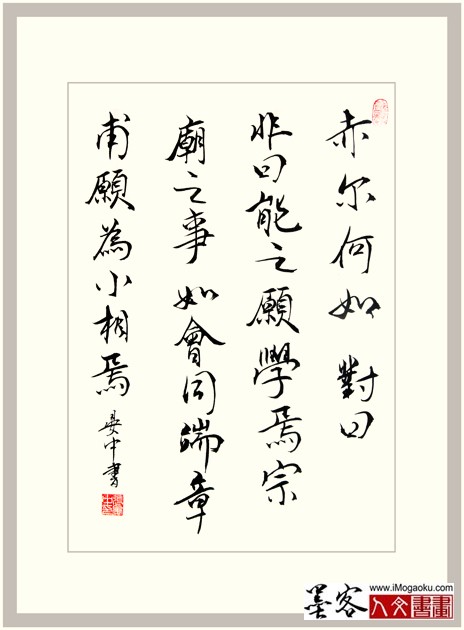 赤尔何如 對曰
非曰能之願學焉宗
廟之事 如會同端章
甫願為小相焉
晏中書
墨客
www.iMogaoku.com
人文書畫